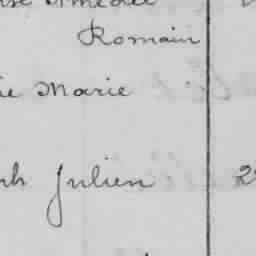 Amédée
Romain
ie Marie
ph Julien 2